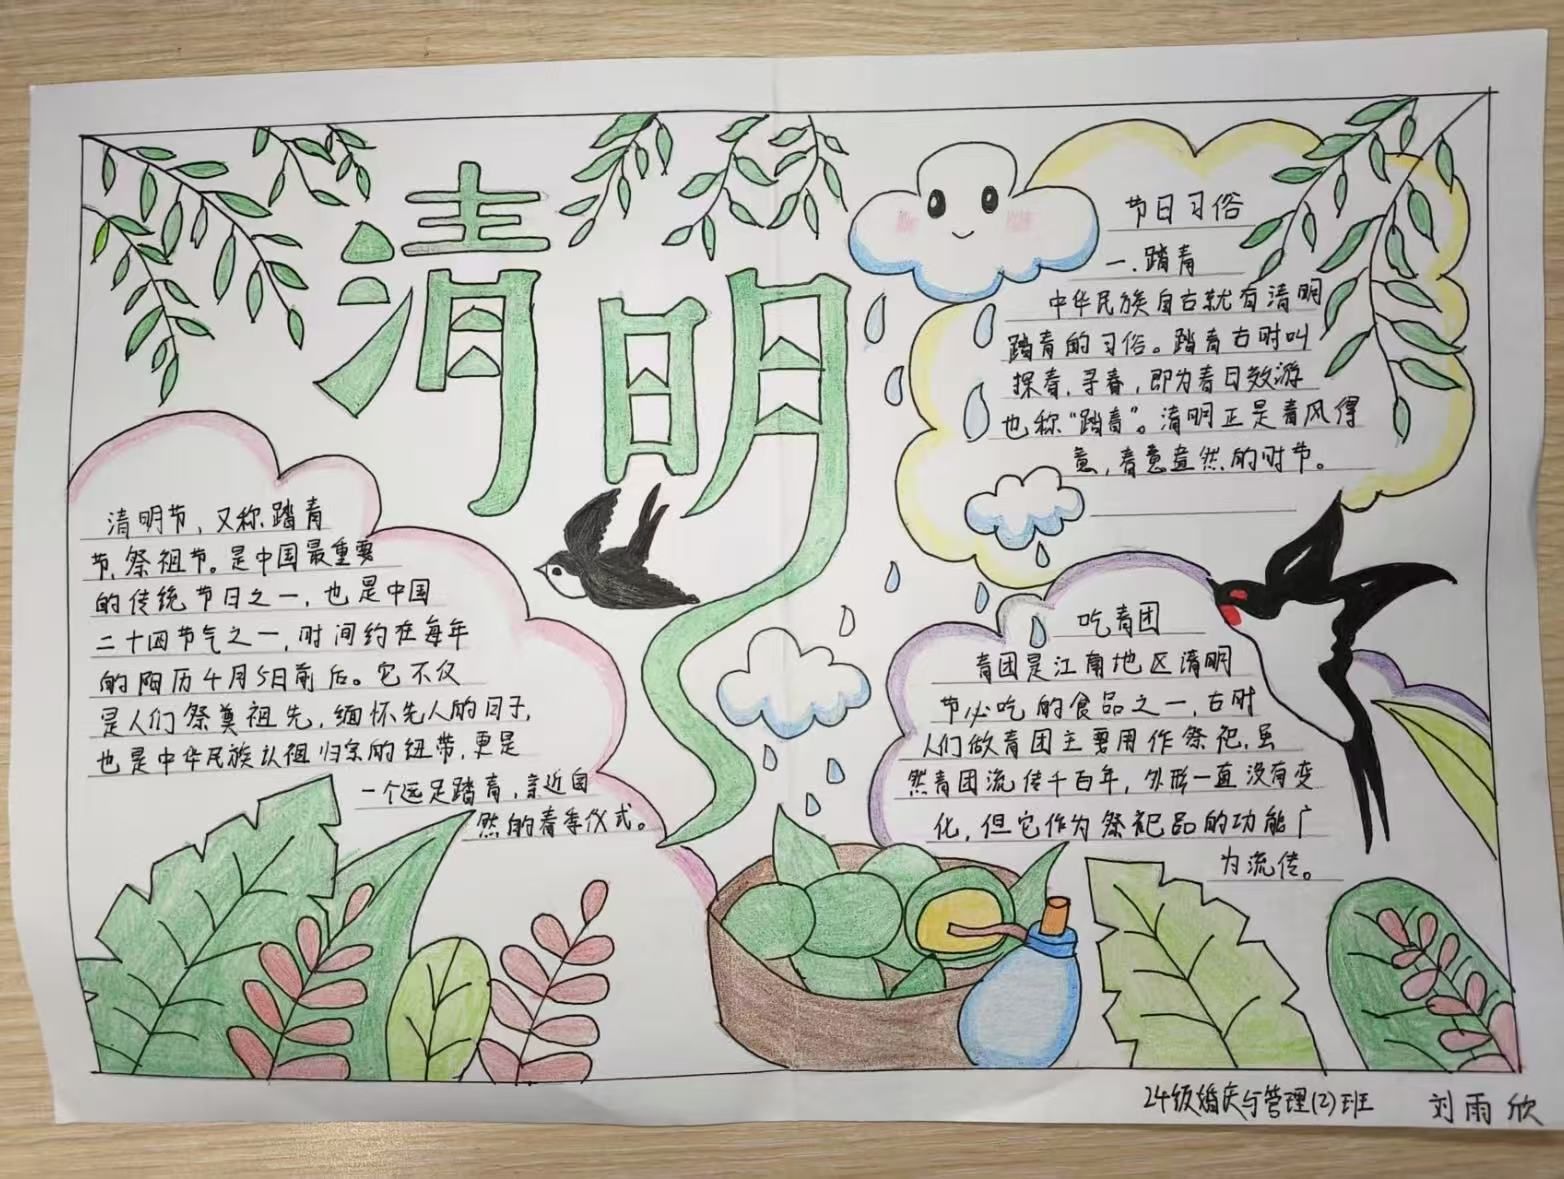 清明
清明节，又称踏青
节、祭祖节。是中国最重要
的传统节日之一，也是中国
二十四节气之一，时间约在每年
的阳历4月5日前后。它不仅
是人们祭奠祖先，缅怀先人的日子，
也是中华民族认祖归宗的纽带，更是
一个远足踏青，亲近自
然的春季仪式。
节日习俗
一.踏青
中华民族自古就有清明
踏青的习俗。踏青古时叫
探春，寻春，即为春日效游
也称“踏青”。清明正是春风得
意，春意盎然的时节。
吃青团
青团是江南地区清明
节必吃的食品之一，古时
人们做青团主要用作祭祀，虽
然青团流传千百年，外形一直没有变
化，但它作为祭祀品的功能广
为流传。
24级婚庆与管理(2)班 刘雨欣